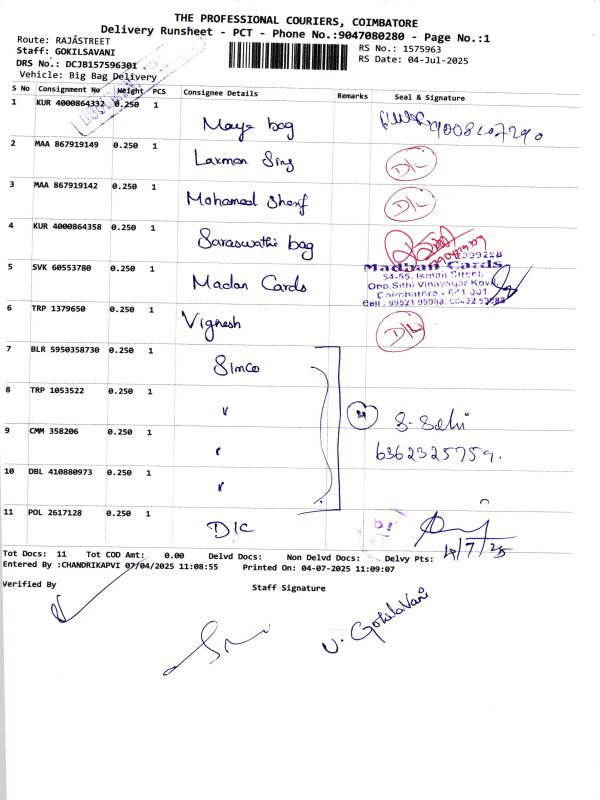 THE PROFESSIONAL COURIERS, COIMBATORE
Delivery Runsheet - PCT - Phone No.:9047080280 - Page No.:1
Route: RAJASTREET
RS No.: 1575963
Staff: GOKILSAVANI
RS Date: 04-Jul-2025
DRS No.: DCJB157596301
Vehicle: Big Bag Delivery
S No Consignment No Weight PCS Consignee Details Remarks Seal & Signature
1 KUR 4000864332 0.250 1 Maya bag 9008107290
2 MAA 867919149 0.250 1 Laxman Sing D/C
3 MAA 867919142 0.250 1 Mohamed Sherif D/C
4 KUR 4000864358 0.250 1 Saraswathi bag
5 SVK 60553780 0.250 1 Madan Cards
Madhan Cards
54-55, Ismail Street,
Opp.Sithi Vinayagar Kovil,
Coimbatore - 641 001.
Cell : 99521 99988,
6 TRP 1379650 0.250 1 Vignesh D/C
7 BLR 5950358730 0.250 1 Simco
8 TRP 1053522 0.250 1 "
4 S. Selvi
9 CMM 358206 0.250 1 "
6362325759.
10 DBL 410880973 0.250 1 "
11 POL 2617128 0.250 1 D/C
4/7/25
Tot Docs: 11 Tot COD Amt: 0.00 Delvd Docs: Non Delvd Docs: Delvy Pts:
Entered By :CHANDRIKAPVI 07/04/2025 11:08:55 Printed On: 04-07-2025 11:09:07
Verified By
Staff Signature
V. GokilaVani